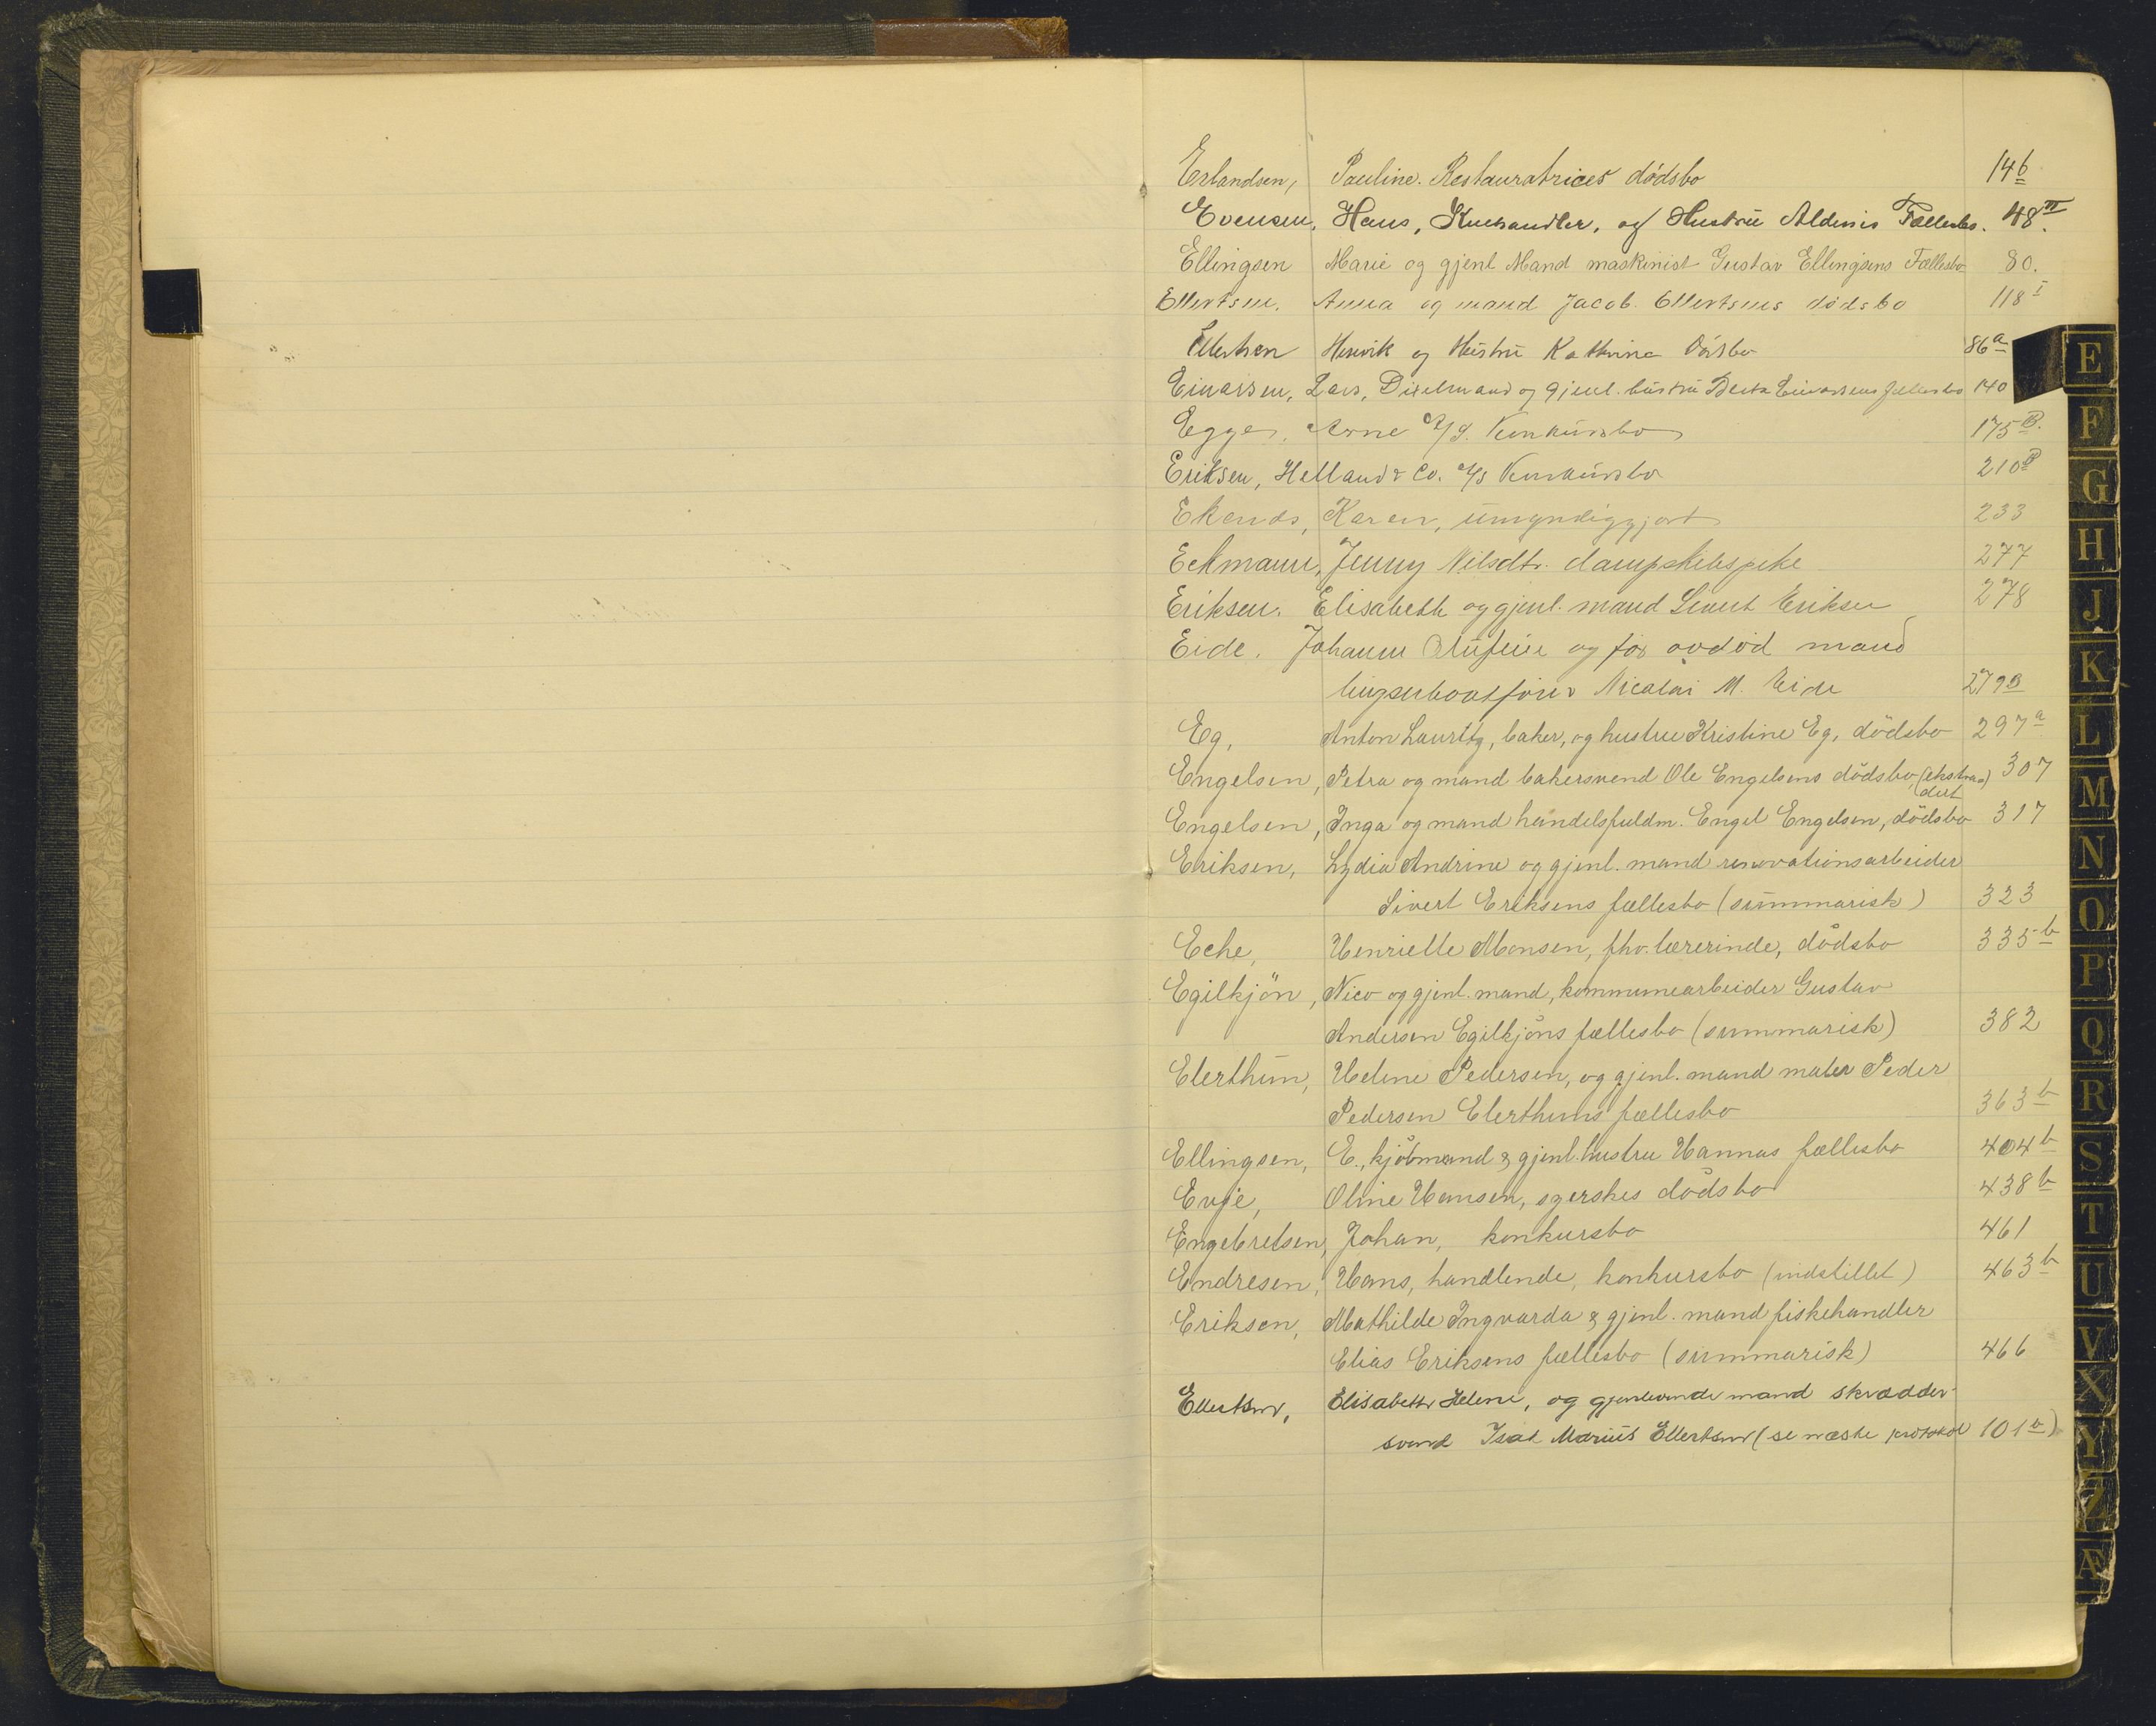 Erlandsen, Pauline. Restauratrices dödsbo 14 b
Evensen, Hans, Kuhandler, og Hustru Aldinis Fællesbo. 48 II.
Ellingsen Marie og gjenl Mand maskinist Gustav Ellingsens Fællesbo 80.
Ellertsen. Anna og mand Jacob Ellertsens dödsbo 118 I
Ellertsen Henrik og Hustru Kathrine 86 a
Einarsen, Lars, og gjenl. hustru Berta Einarsens fællesbo 140
Egge, Arne A/S. Konkursbo 175 B.
Eriksen, Helland & Co. A/S Konkursbo 210 B
Ekends, Karen, umyndiggjort 233
Eckmann, Jenny Nilsdtr. dampskibspike 277
Eriksen. Elisabeth og gjenl. mand Sivert Eriksen 278
Eide. Johanne og før avdöd mand
Nicolai M. Eide 279 B
Eg, Anton Lauritz, baker, og hustru Kristine Eg, dödsbo 297 a
Engelsen, Petra og mand bakersvend Ole Engelsens dödsbo (ekstra- 307
dert)
Engelsen, Inga og mand handelsfuldm. Engel Engelsen, dödsbo 317
Eriksen, Lydia Andrine og gjenl. mand renovationsarbeider
Sivert Eriksens fællesbo (summarisk) 323
Eche, Henriette Monsen, fhv. lærerinde, dödsbo 335 b
Egilkjön, Nico og gjenl. mand, kommunearbeider Gustav
Andersen Egilkjöns fællesbo (summarisk) 382
Elerthun, Helene Pedersen, og gjenl. mand maler Peder
Pedersen Elerthuns fællesbo 363 b
Ellingsen, E., kjöbmand & gjenl. hustru Hannas fællesbo 404 b
Evje, Oline Hansen, syerskes dödsbo 438 b
Engebretsen, Johan, konkursbo 461
Endresen, Hans, handlende, konkursbo (indstillet) 463 b
Eriksen, Mathilde Ingvarda & gjenl. mand fiskehandler
Elias Eriksens fællesbo (summarisk) 466
Ellertsen, Elisabeth Helene, og gjenlevende mand skrædder-
svend Isak Marius Ellertsen (se næste protokol 101 b)
E
F
G
H
J
K
L
M
N
O
P
Q
R
S
T
U
V
X
Y
Z
Æ